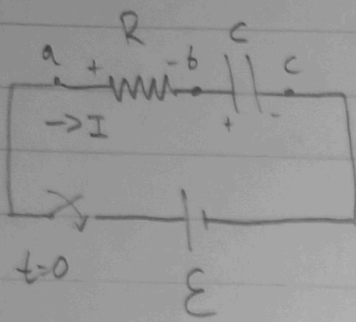 R C
a + - b c
-> I + -
t=0
ε